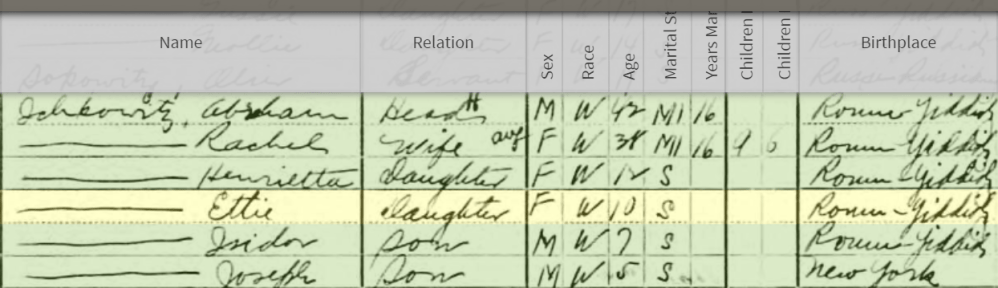 Name Relation Sex Race Age Marital St Years Mar Children Children Birthplace
Daughter F W
Mollie Daughter F W 14
Servant
Itchkowitz, Abraham Head M W 42 M1 16 Roum Yiddish
Rachel Wife F W 38 M1 16 9 6 Roum Yiddish
Henrietta Daughter F W 12 S Roum Yiddish
Ettie Daughter F W 10 S Roum-Yiddish
Isidor Son M W 7 S Roum-Yiddish
Joseph Son M W 5 S New York